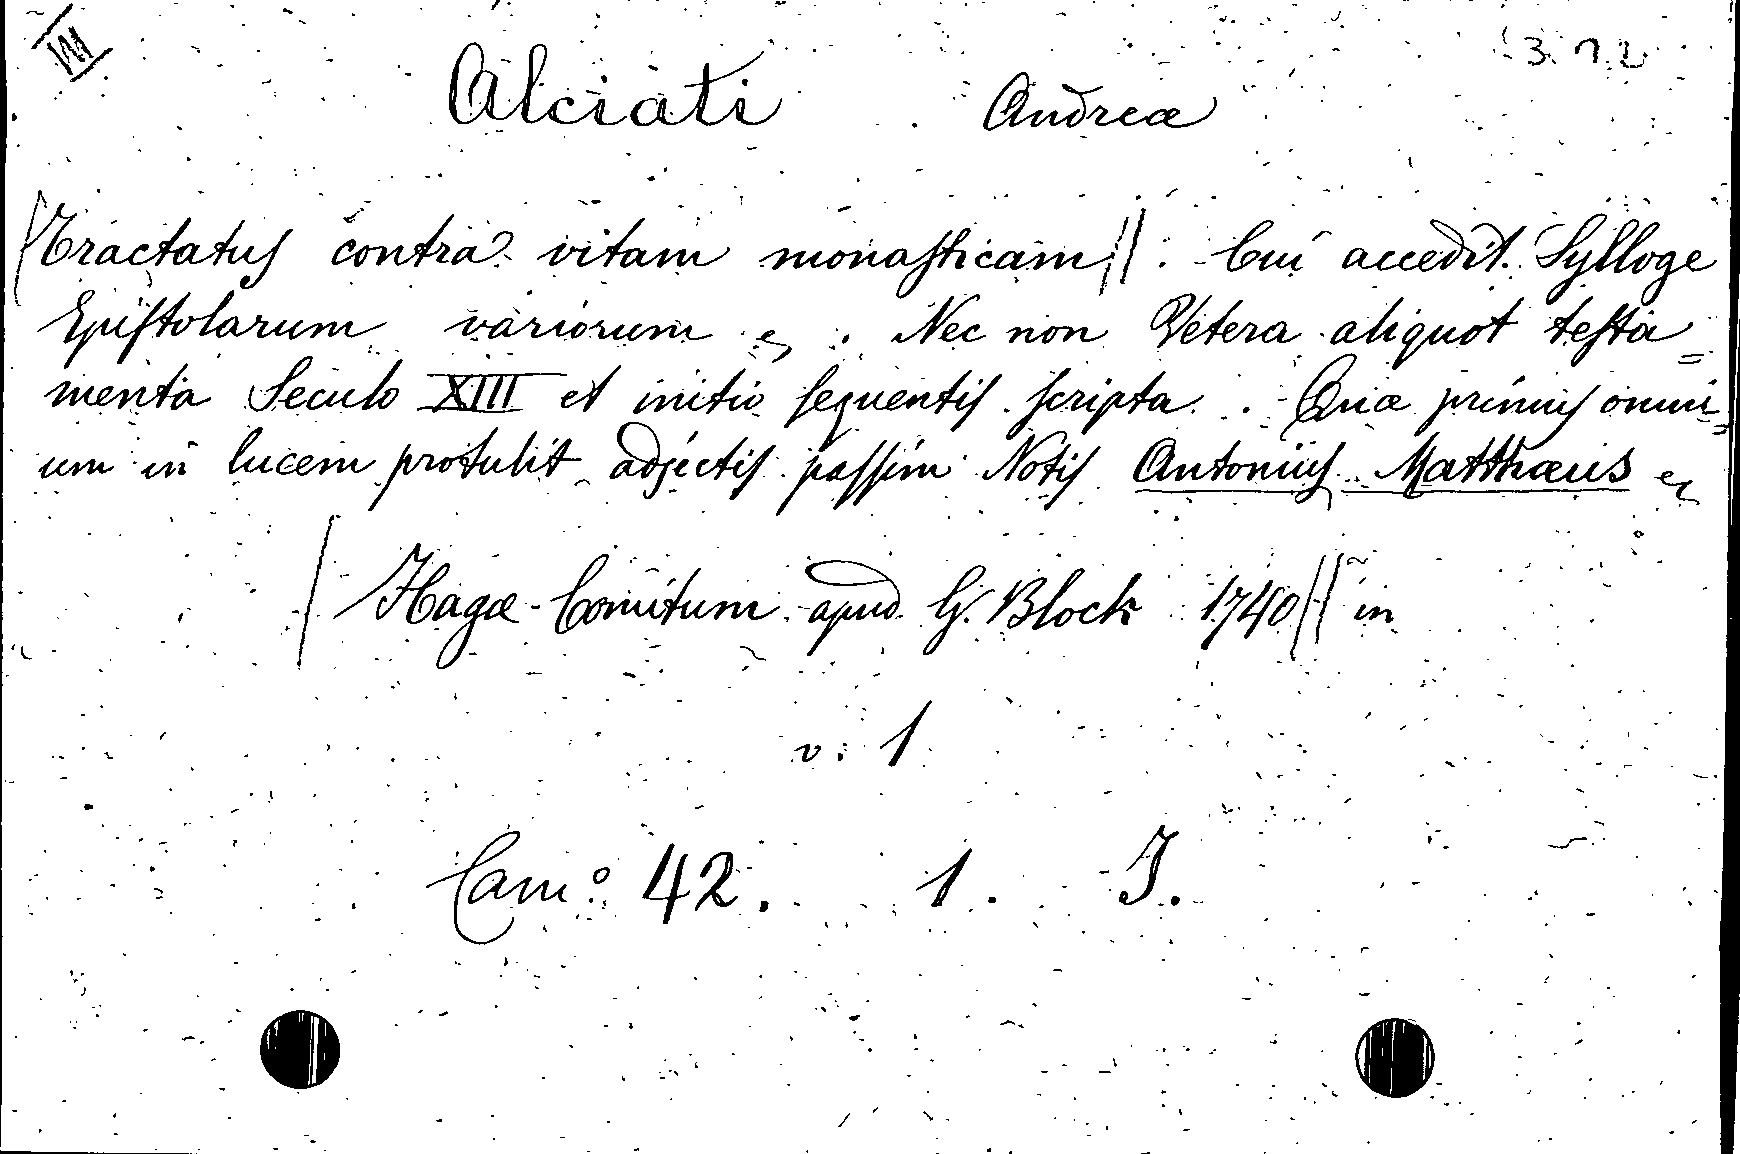 VII 3.12
Alciati Andreæ
Tractatus contra vitam monasticam. Cui accedit Sylloge
Epistolarum variorum . Nec non Vetera aliquot testa=
menta Seculo XIII et initio sequentis scripta. Quæ primus omni=
um in lucem protulit adjectis passim Notis Antonius Matthæus
Hagæ-Comitum apud G. Block 1740 in
v. 1
Camº 42. 1. J.